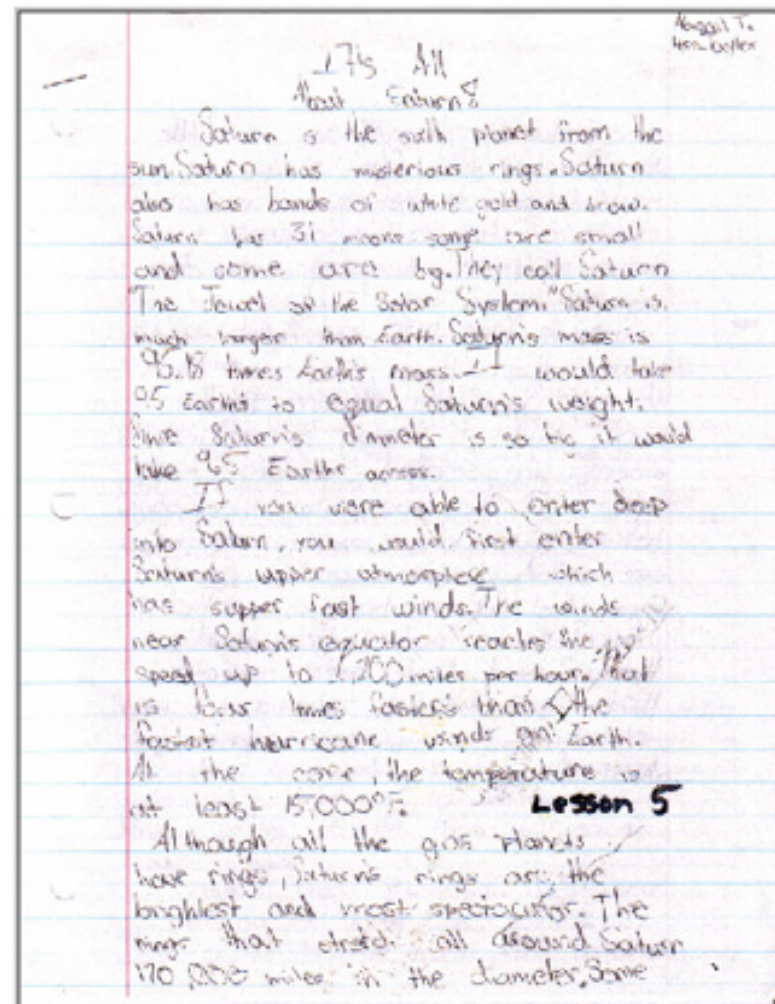 Abigail T.
It's All
About Saturn!
Saturn is the sixth planet from the
sun. Saturn has misterious rings. Saturn
also has bands of white gold and brow.
Saturn has 31 moons some are small
and some are big. They call Saturn
"The Jewel of the Solar System." Saturn is
much larger than Earth. Saturn's mass is
95.18 times Earth's mass. It would take
95 Earths to equal Saturn's weight.
Saturn's dimmeter is so big it would
take 9.5 Earths across.
If you were able to enter deep
into Saturn, you would first enter
Saturn's upper atmosphere which
has supper fast winds. The winds
near Saturn's equator reaches the
speed up to 1,200 miles per hour. That
is four times fasters than the
fastest hurricane winds on Earth.
At the core, the temperature is
at least 15,000°F.
Lesson 5
Although all the gas planets
have rings, Saturn's rings are the
brightest and most spectacular. The
rings that stretch all around Saturn
170,000 miles in the diameter. Some